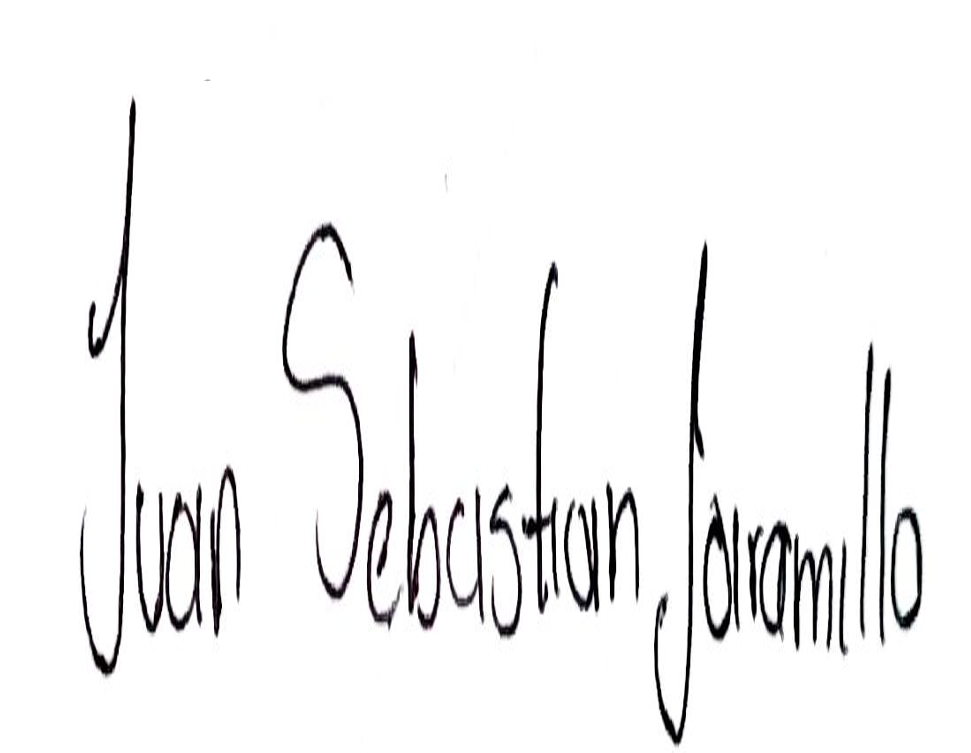 Juan Sebastian Jaramillo